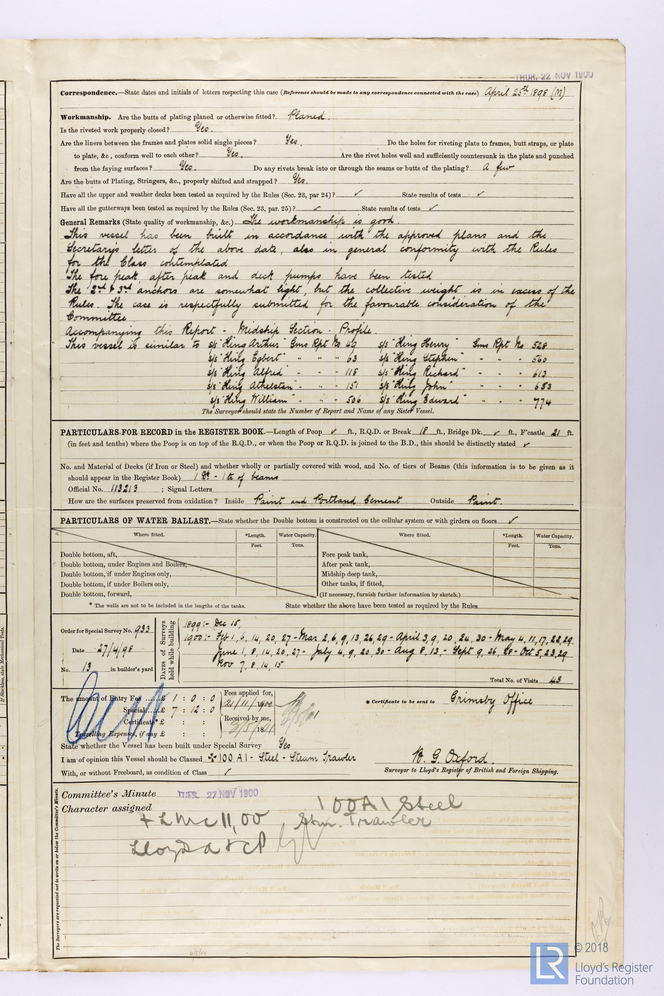 THUR. 22 NOV 1900
Correspondence.—State dates and initials of letters respecting this case (Reference should be made to any correspondence connected with the case) April 25th 1898 (M)
Workmanship. Are the butts of plating planed or otherwise fitted? Planed
Is the riveted work properly closed? Yes.
Are the liners between the frames and plates solid single pieces? Yes. Do the holes for riveting plates to frames, butt straps, or plate
to plate, &c., conform well to each other? Yes. Are the rivet holes well and sufficiently countersunk in the plate and punched
from the faying surfaces? Yes. Do any rivets break into or through the seams or butts of the plating? A few
Are the butts of Plating, Stringers, &c., properly shifted and strapped? Yes.
Have all the upper and weather decks been tested as required by the Rules (Sec. 23, par 24)? ✓ State results of tests ✓
Have all the gutterways been tested as required by the Rules (Sec. 23, par. 25)? ✓ State results of tests ✓
General Remarks (State quality of workmanship, &c.) The workmanship is good.
This vessel has been built in accordance with the approved plans and the
Secretary's letter of the above date, also in general conformity with the Rules
for the Class contemplated
The fore peak after peak and deck pumps have been tested
The 2nd & 3rd anchors are somewhat light, but the collective weight is in excess of the
Rules. The case is respectfully submitted for the favourable consideration of the
Committee
Accompanying this Report - Midship Section - Profile
This vessel is similar to s/s "King Arthur" Gms Rpt No s/s "King Henry" Gms Rpt No 528
s/s "King Egbert" " " " 63 s/s "King Stephen" " " " 560
s/s "King Alfred" " " " 118 s/s "King Richard" " " " 613
s/s "King Athelstan" " " " 151 s/s "King John" " " " 683
s/s "King William" " " " 506 s/s "King Edward" " " " 774
The Surveyor should state the Number of Report and Name of any Sister Vessel.
PARTICULARS FOR RECORD in the REGISTER BOOK.—Length of Poop ✓ ft., R.Q.D. or Break 18 ft., Bridge Dk. ✓ ft., F'castle 21 ft.
(in feet and tenths) where the Poop is on top of the R.Q.D., or when the Poop or R.Q.D. is joined to the B.D., this should be distinctly stated ✓
No. and Material of Decks (if Iron or Steel) and whether wholly or partially covered with wood, and No. of tiers of Beams (this information is to be given as it
should appear in the Register Book) 1 Dk - 1 tr of beams
Official No. 113213 ; Signal Letters
How are the surfaces preserved from oxidation? Inside Paint and Portland Cement Outside Paint.
PARTICULARS OF WATER BALLAST.—State whether the Double bottom is constructed on the cellular system or with girders on floors ✓
Where fitted. *Length. Water Capacity. Where fitted. *Length. Water Capacity.
Feet. Tons. Feet. Tons.
Double bottom, aft, Fore peak tank,
Double bottom, under Engines and Boilers, After peak tank,
Double bottom, if under Engines only, Midship deep tank,
Double bottom, if under Boilers only, Other tanks, if fitted,
Double bottom, forward, (If necessary, furnish further information by sketch.)
* The wells are not to be included in the lengths of the tanks. State whether the above have been tested as required by the Rules
Order for Special Survey No. 933
Date 27/4/98
No. 13 in builder's yard
Dates of Surveys held while building
1899:- Dec 15,
1900:- Feb 1, 6, 14, 20, 27 - Mar 2, 6, 9, 13, 26, 29 - April 3, 9, 20, 24, 30 - May 4, 11, 17, 22, 29
June 1, 8, 14, 20, 27 - July 4, 9, 20, 30 - Aug 8, 13 - Sept 9, 26, 28 - Oct 5, 23, 29
Nov 7, 8, 14, 15
Total No. of Visits 43
The amount of Entry Fee £ 1 : 0 : 0 Fees applied for,
Special £ 7 : 12 : 0 21/11/1900
Certificate* £ : : Received by me,
Travelling Expenses, if any £ : :
* Certificate to be sent to Grimsby Office
State whether the Vessel has been built under Special Survey Yes
I am of opinion this Vessel should be Classed ✠ 100 A1 - Steel - Steam Trawler
With, or without Freeboard, as condition of Class ✓
W. G. Oxford.
Surveyor to Lloyd's Register of British and Foreign Shipping.
Committee's Minute TUES. 27 NOV 1900
Character assigned 100A1 Steel
+ LMC 11,00 Stm. Trawler
Lloyds A & CP
The Surveyors are requested not to write on or below the Committee's Minute.
© 2018
LR Lloyd's Register
Foundation